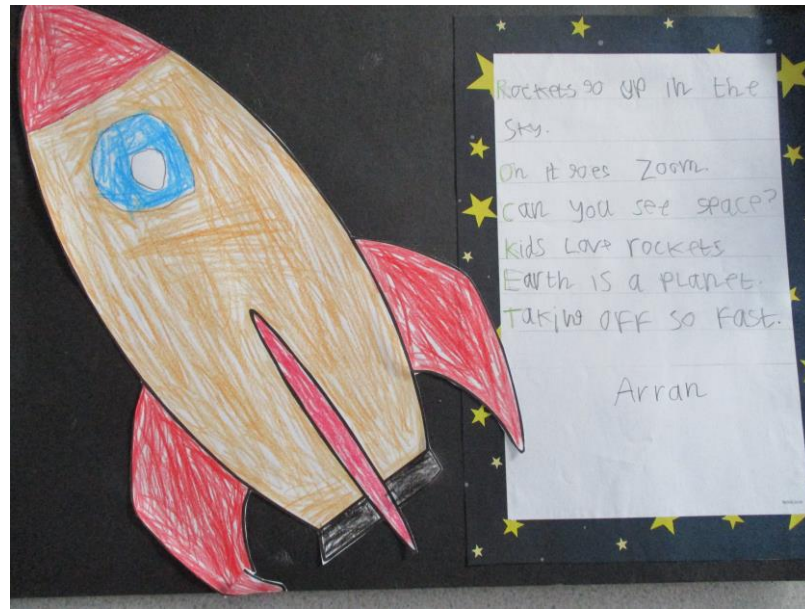 Rockets go up in the
Sky.
On it goes zoom.
Can you see space?
Kids Love rockets
Earth is a planet.
Takiw off so fast.
Arran